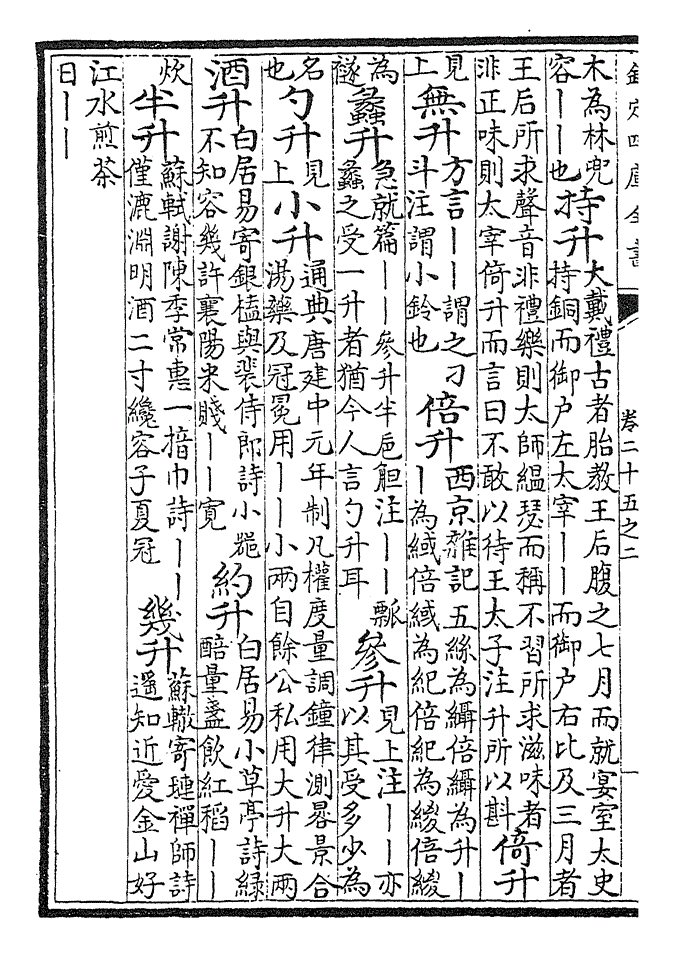 欽定四庫全書
卷二十五之二
一
木為林兜
容丨丨也
持升
大戴禮古者胎教王后腹之七月而就宴室太史
持銅而御户左太宰丨丨而御户右比及三月者
王后所求聲音非禮樂則大師緼瑟而稱不習所求滋味者
非正味則太宰倚升而言曰不敢以待王太子注升所以斟
倚升
見
上
無升
方言丨丨謂之刁
斗注謂小鈴也
倍升
西京雜記五絲為䌰倍䌰為升丨
丨為緎倍緎為紀倍紀為緵倍緵
為
襚
蠡升
急就篇丨丨參升半巵觛注丨丨瓢
蠡之受一升者猶今人言勺升耳
參升
見上注丨丨亦
以其受多少為
名
也
勺升
見
上
小升
通典唐建中元年制凡權度量調鐘律測晷景合
湯藥及冠冕用丨丨小兩自餘公私用大升大兩
酒升
白居易寄銀榼與裴侍郎詩小器
不知容幾許襄陽米賤丨丨寛
約升
白居易小草亭詩緑
醅量盞飲紅稻丨丨
炊
半升
蘇軾謝陳季常惠一揞巾詩丨丨
僅漉淵明酒二寸纔容子夏冠
幾升
蘇轍寄璉禪師詩
遥知近愛金山好
江水煎茶
日丨丨